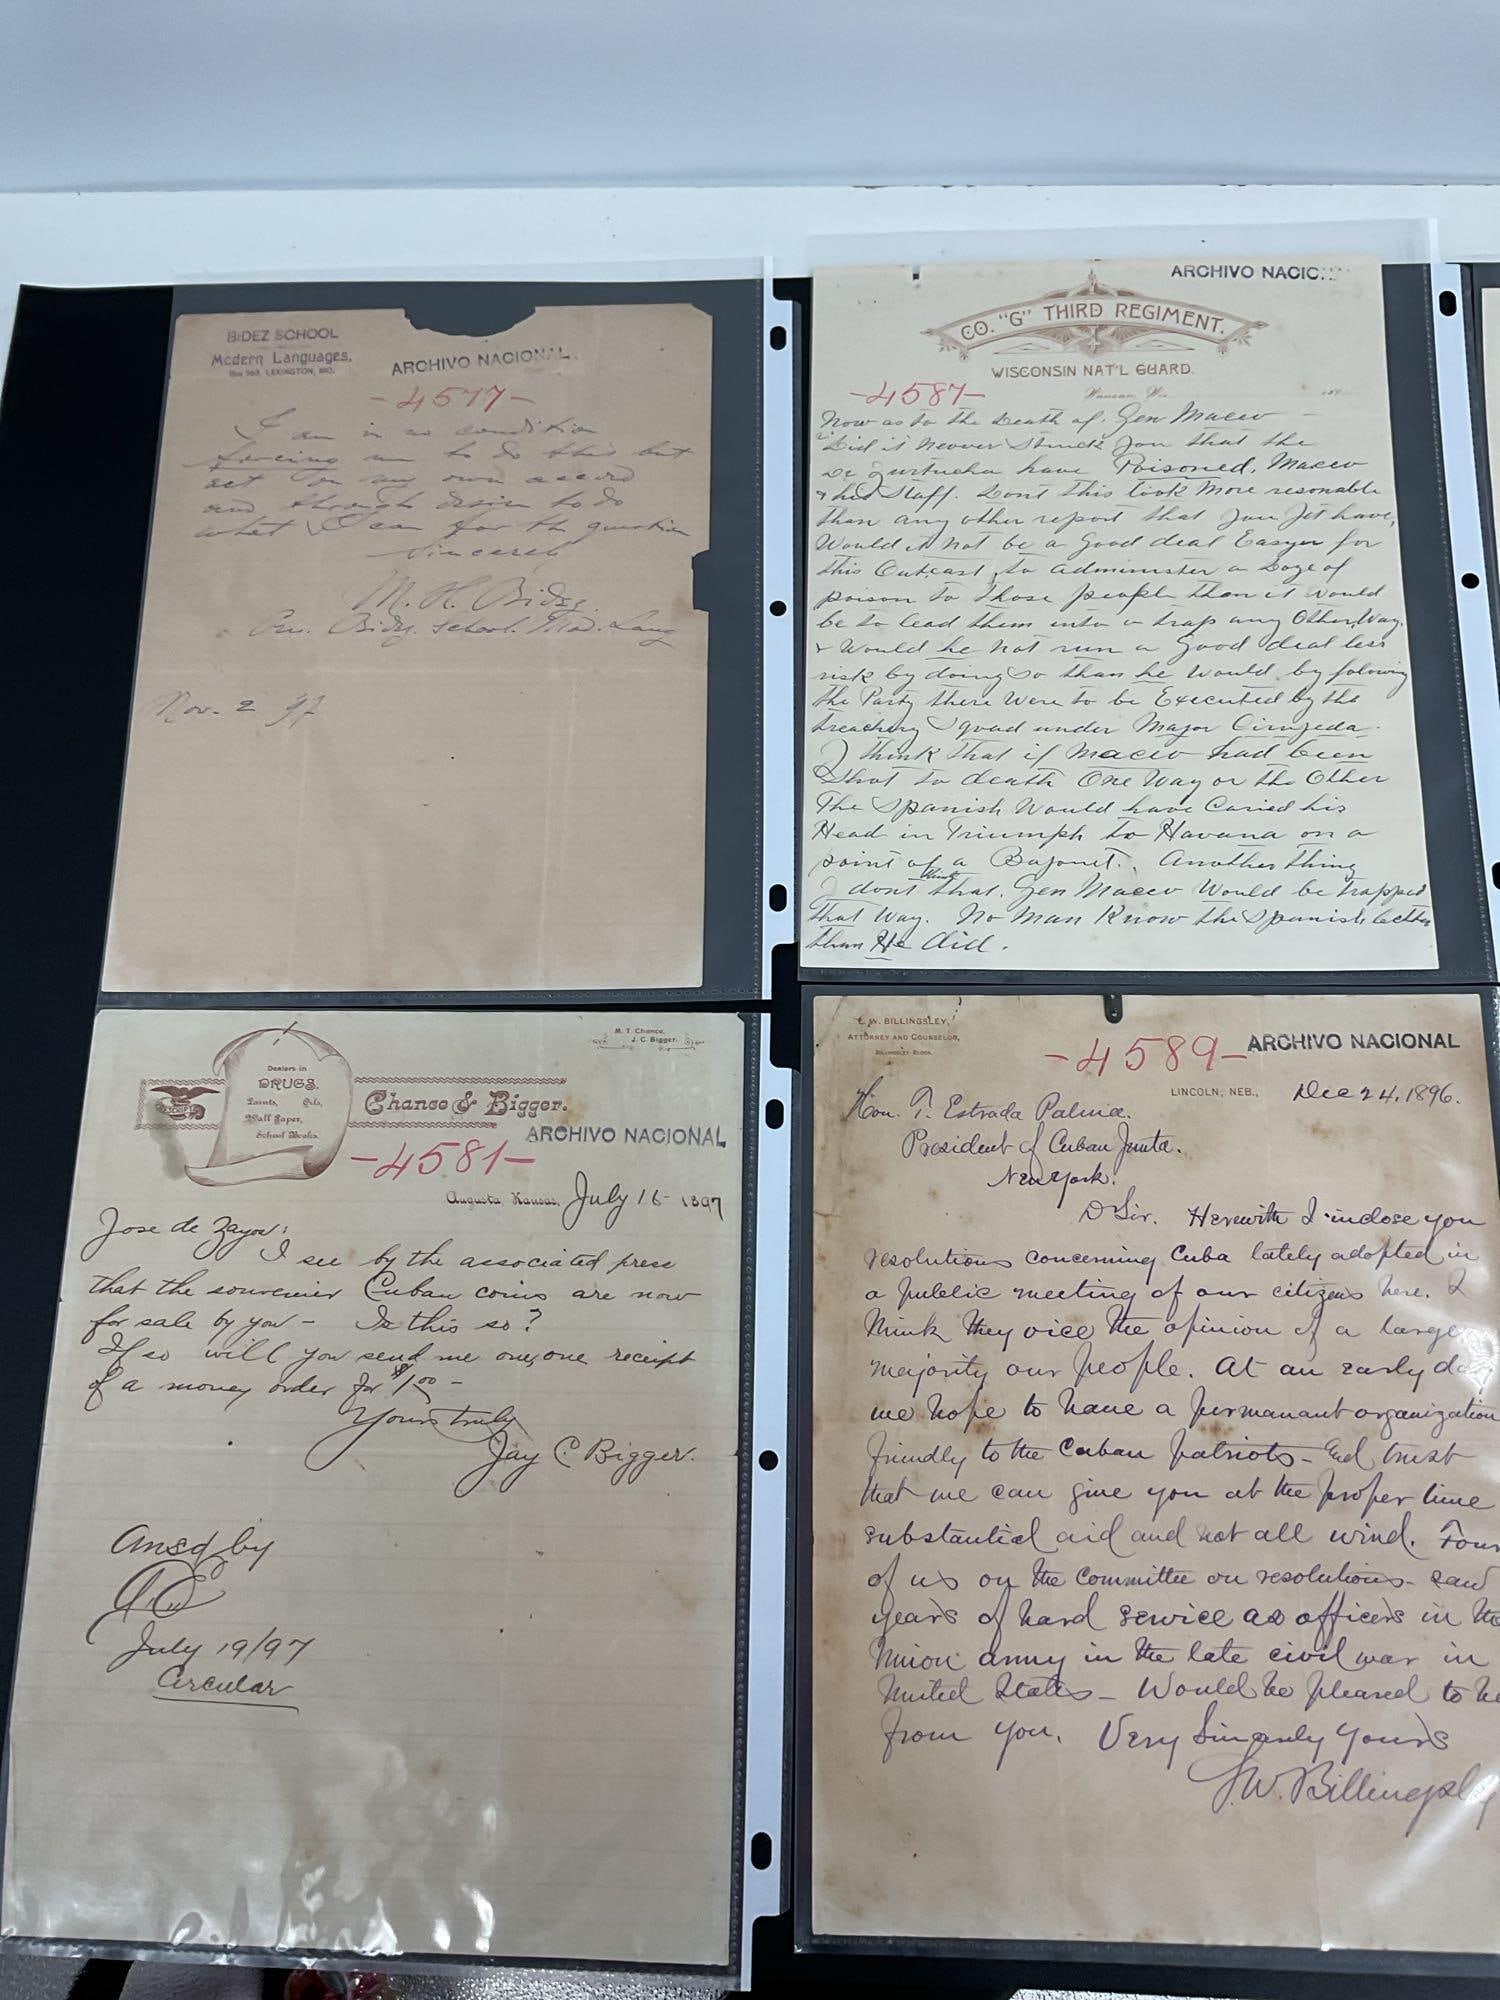 BIDEZ SCHOOL
Modern Languages,
Box 568, LEXINGTON, MO.
ARCHIVO NACIONAL
-4577-
I am in no condition
forcing me to do this but
act on my own accord
and through desire to do
what I can for the question
Sincerely
M. H. Bidez
Pru. Bidz. School. Mod. Lang
Nov. 2 97
ARCHIVO NACIC
CO. "G" THIRD REGIMENT.
WISCONSIN NAT'L GUARD.
-4587-
Wausau, Wis. 189
Now as to the Death of. Gen Maceo —
Did it Never Struck You that the
Dr Zurtucha have Poisoned. Maceo
& his Staff. Dont this look More resonable
than any other report that You Jet have,
Would it Not be a Good deal Easyer for
this Outcast to administer a Doze of
poison to those people than it Would
be to lead them into a trap any Other Way.
& Would he Not run a Good deal less
risk by doing so than he Would by folowing
the Party there Were to be Executed by the
treachery Squad under Major Cirujeda.
I think that if Maceo had been
Shot to death One Way or the Other
The Spanish Would have Caried his
Head in Triumph to Havana on a
point of a Bajonet. Another thing
I dont think that. Gen Maceo Would be trapped
that Way. No Man Know the Spanish better
than He did.
Dealers in
DRUGS.
Paints, Oils,
Wall Paper,
School Books.
M. T. Chance.
J. C. Bigger.
Chance & Bigger.
ARCHIVO NACIONAL
-4581-
Augusta, Kansas, July 16- 1897
Jose de Zayos:
I see by the associated press
that the souvenier Cuban coins are now
for sale by you - Is this so?
If so will you send me one, one receipt
of a money order for $1.00 -
Yours truly
Jay C Bigger.
Ansd by
July 19/97
Circular
L. W. BILLINGSLEY,
ATTORNEY AND COUNSELOR,
BILLINGSLEY BLOCK.
-4589-
ARCHIVO NACIONAL
LINCOLN, NEB., Dec 24, 1896.
Hon. T. Estrada Palma.
President of Cuban Junta.
New York.
D Sir. Herewith I inclose you
resolutions concerning Cuba lately adopted in
a public meeting of our citizens here. I
think they oice the opinion of a large
majority our people. At an early da
we hope to have a permanant organization
friendly to the Cuban patriots - And trust
that we can give you at the proper time
substantial aid and not all wind. Four
of us on the committee on resolutions - saw
years of hard service as officers in the
Union army in the late civil war in
United States - Would be pleased to he
from you. Very Sincerely Yours
L. W. Billingsley